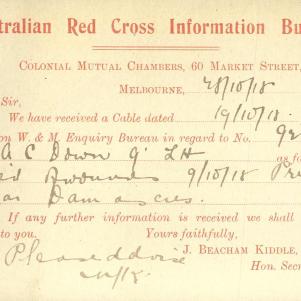 tralian Red Cross Information Bu
COLONIAL MUTUAL CHAMBERS, 60 MARKET STREET,
MELBOURNE, 28/10/18
Sir,
We have received a Cable dated 19/10/18.
on W. & M. Enquiry Bureau in regard to No. 92
A C Down 9' LH as fo
wounds 9/10/18
Damascus.
If any further information is received we shall
to you. Yours faithfully,
Please advise J. BEACHAM KIDDLE,
Hon. Secr